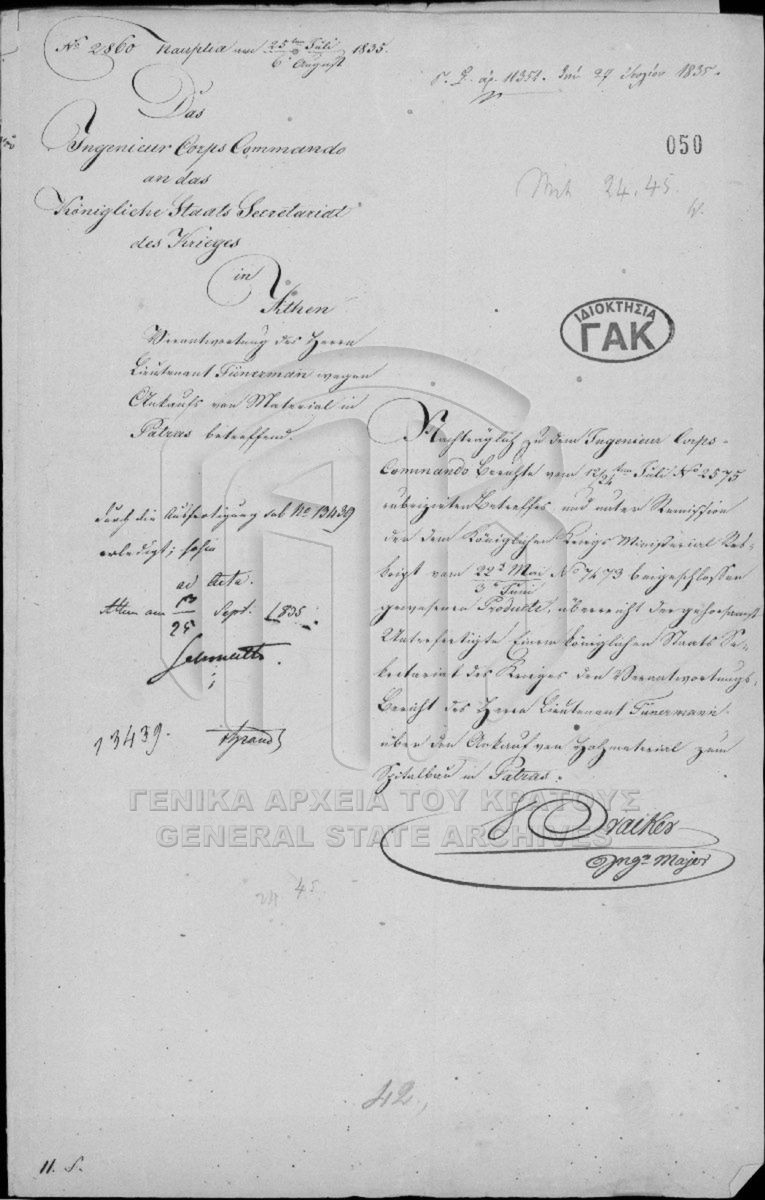 No 2860 Nauplia am 25ten Juli / 6 August 1835.
Γ. Σ. ἀρ. 11351. τὴν 27 Ἰουλίου 1835.
Das
Ingenieur Corps Commando
an das
Königliche Staats Secretariat
des Krieges
in
Athen
050
24.45.
ΙΔΙΟΚΤΗΣΙΑ
ΓΑΚ
Verantwortung des Herrn
Lieutenant Fünerman wegen
Ankaufs von Material in
Patras betreffend.
Nachträglich zu dem Ingenieur Corps-
Commando Berichte vom 12/24ten Juli No 2575
rubrizirten Betreffes, und unter Remission
der dem Königlichen Kriegs Ministerial Res-
kript vom 22t Mai / 3t Juni No 7473 beigeschlossen
gewesenen Produkte, überreicht der gehorsamst
Unterfertigte Einem königlichen Staats Se-
kretariat des Krieges den Verantwortungs-
Bericht des Herrn Lieutenant Fünermann
über den Ankauf von Holzmaterial zum
Spitalbau in Patras.
durch die Ausfertigung sub No 13439
erledigt;
ad Acta.
Athen am 13/25 Sept. 1835.
Schmaltz
13439.
Ingr Major
ΓΕΝΙΚΑ ΑΡΧΕΙΑ ΤΟΥ ΚΡΑΤΟΥΣ
GENERAL STATE ARCHIVES
24 45.
42.
11. S.